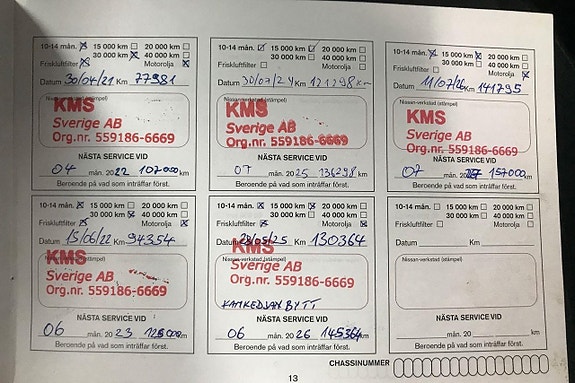 10-14 mån. 15 000 km 20 000 km
30 000 km 40 000 km
Friskluftfilter Motorolja
Datum 30/04/21 Km 77981
Nissan-verkstad (stämpel)
KMS
Sverige AB
Org.nr. 559186-6669
NÄSTA SERVICE VID
04 mån. 2022 107000 km
Beroende på vad som inträffar först.
10-14 mån. 15 000 km 20 000 km
30 000 km 40 000 km
Friskluftfilter Motorolja
Datum 30/07/24 Km 121298 km
Nissan-verkstad (stämpel)
KMS
Sverige AB
Org.nr. 559186-6669
NÄSTA SERVICE VID
07 mån. 2025 136298 km
Beroende på vad som inträffar först.
10-14 mån. 15 000 km 20 000 km
30 000 km 40 000 km
Friskluftfilter Motorolja
Datum 11/07/ Km 141795
Nissan-verkstad (stämpel)
KMS
Sverige AB
Org.nr. 559186-6669
NÄSTA SERVICE VID
07 mån. 20 157000 km
Beroende på vad som inträffar först.
10-14 mån. 15 000 km 20 000 km
30 000 km 40 000 km
Friskluftfilter Motorolja
Datum 15/06/22 Km 94354
Nissan-verkstad (stämpel)
KMS
Sverige AB
Org.nr. 559186-6669
NÄSTA SERVICE VID
06 mån. 20 23 km
Beroende på vad som inträffar först.
10-14 mån. 15 000 km 20 000 km
30 000 km 40 000 km
Friskluftfilter Motorolja
Datum 28/05/25 130364
Nissan-verkstad (stämpel)
KMS
Sverige AB
Org.nr. 559186-6669
KAMKEDJAN BYTT
NÄSTA SERVICE VID
06 mån. 20 26 145364 km
Beroende på vad som inträffar först.
10-14 mån. 15 000 km 20 000 km
30 000 km 40 000 km
Friskluftfilter Motorolja
Datum Km
Nissan-verkstad (stämpel)
NÄSTA SERVICE VID
mån. 20 km
Beroende på vad som inträffar först.
CHASSINUMMER
13